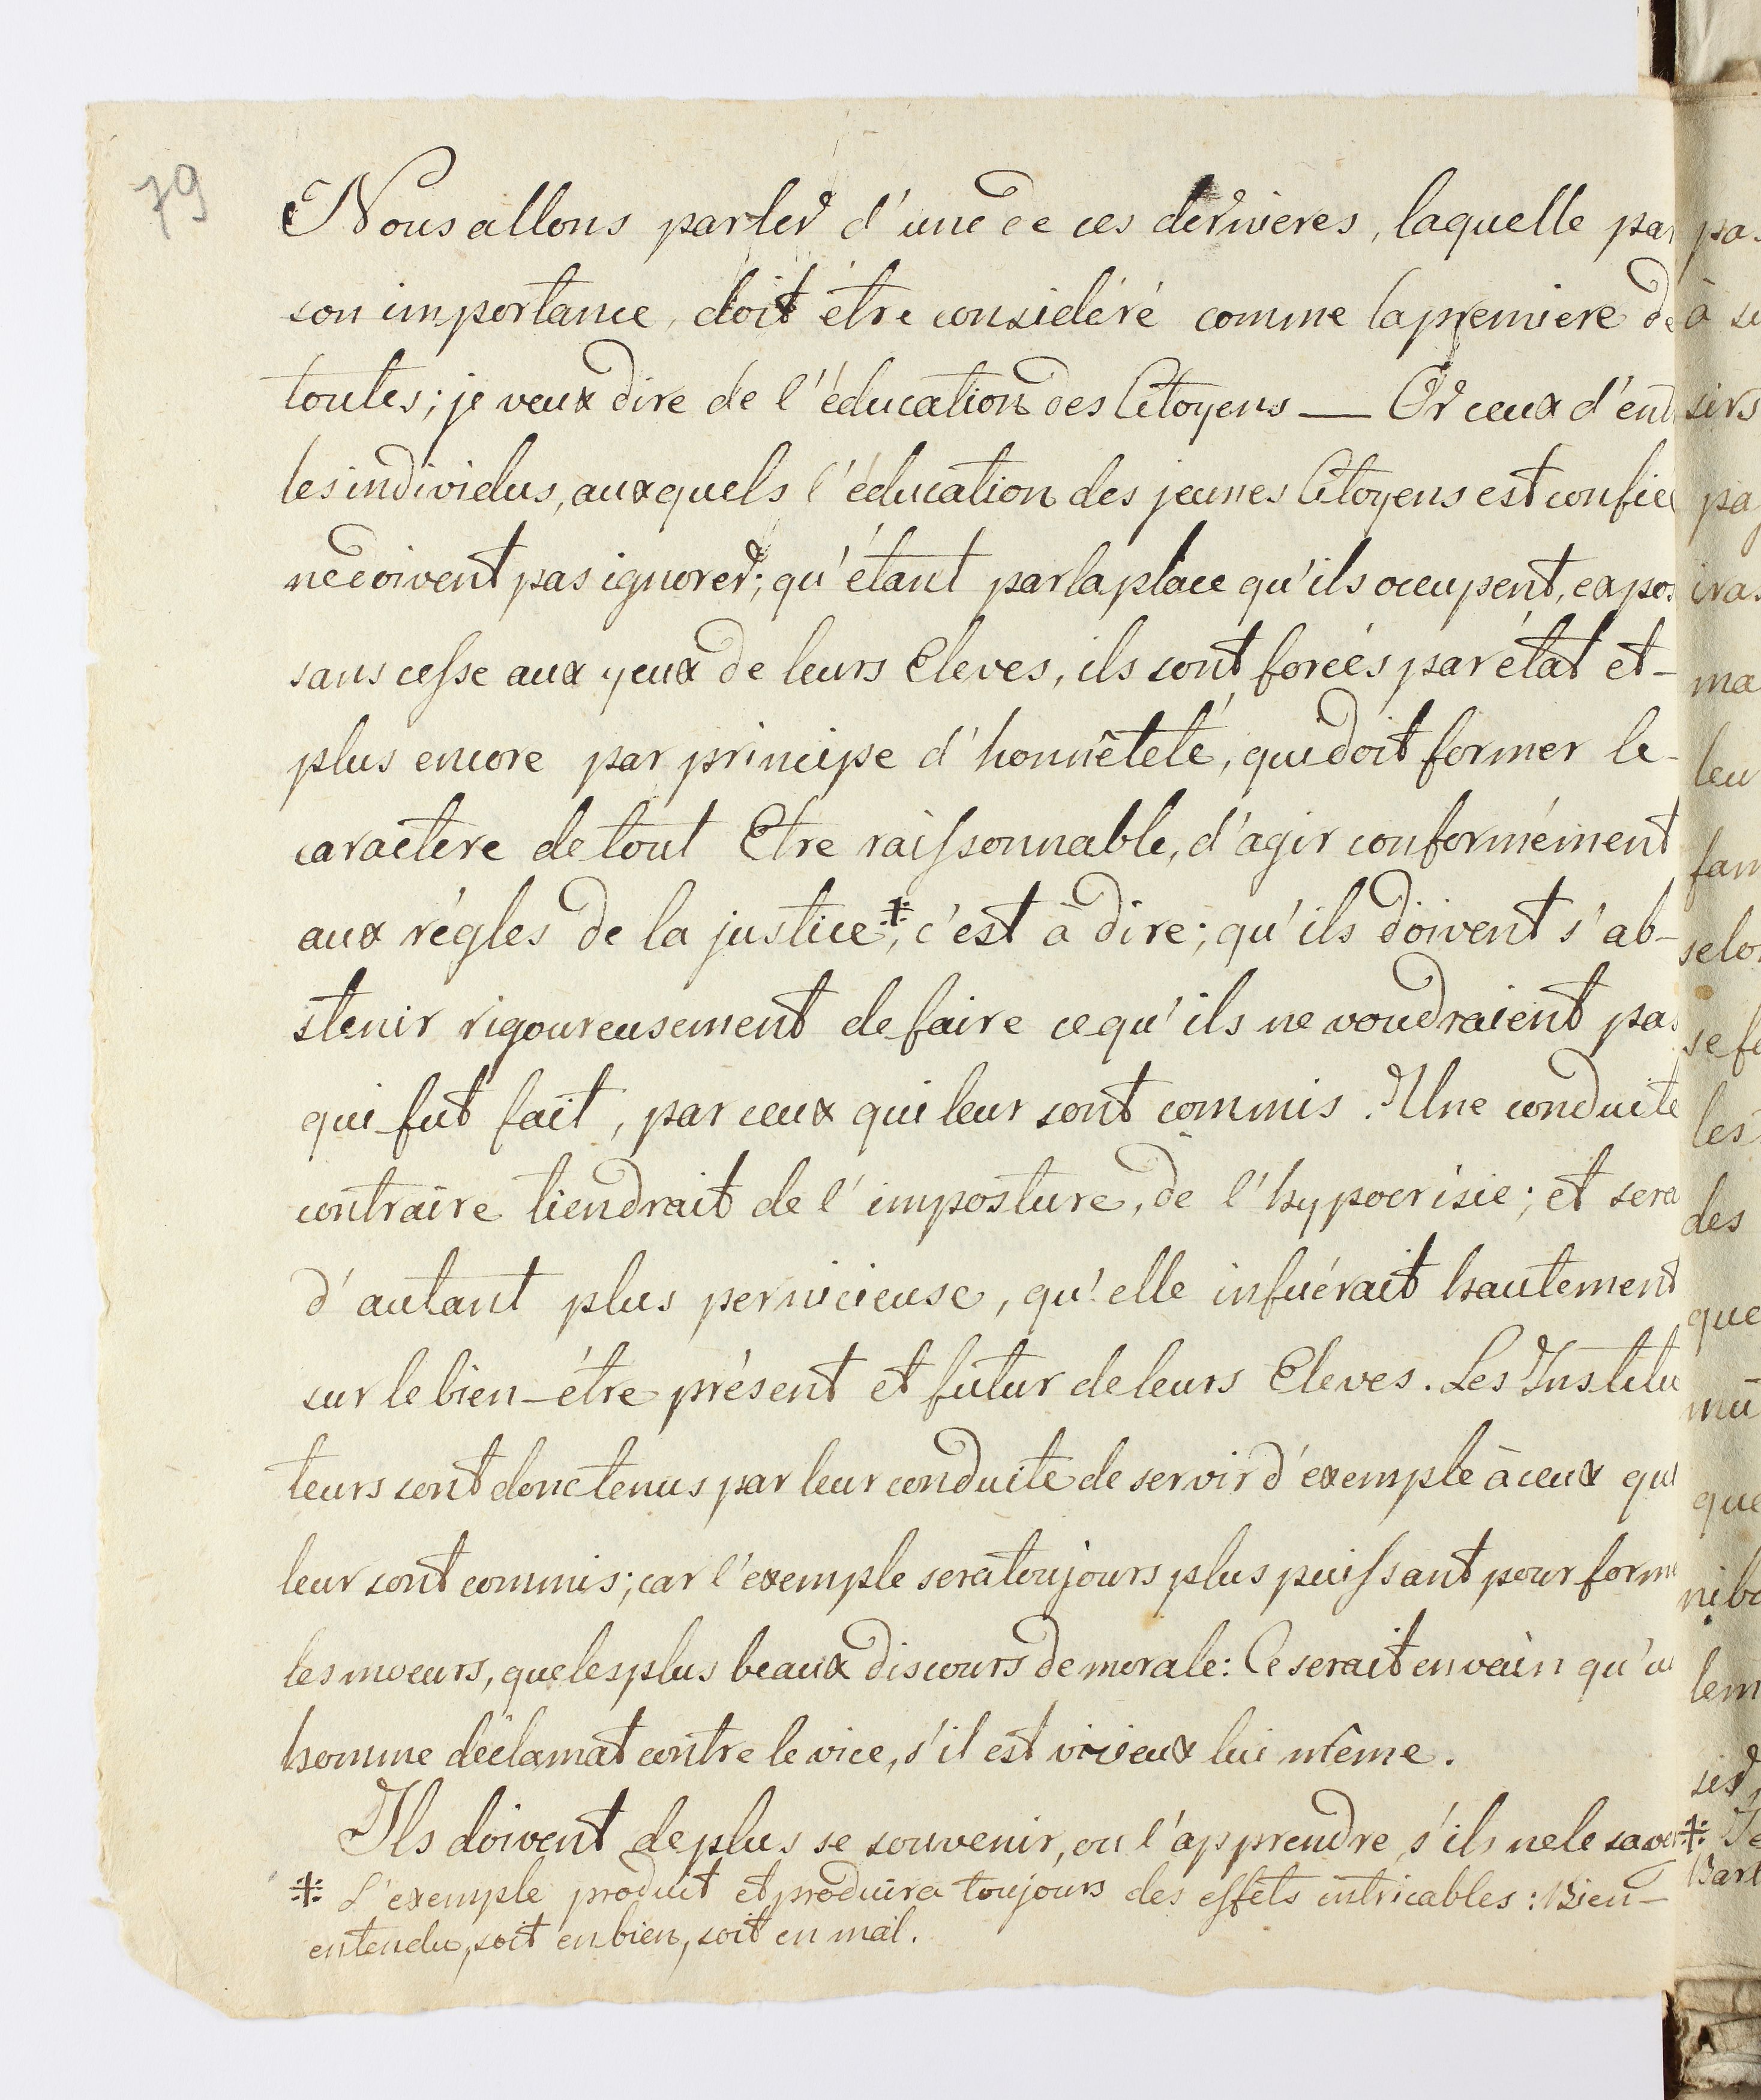 79
Nous allons parler d'une de ces dernieres, laquelle par
son importance, doit être considéré comme la premiere de
toutes; je veux dire de l'éducation des Citoyens — Or ceux d'ent
les individus, auxquels l'éducation des jeunes Citoyens est confiée
ne doivent pas ignorer; qu'étant par la place qu'ils occupent, expos
sans cesse aux yeux de leurs Eleves, ils sont forcés par état et-
plus encore par principe d'honnêteté, qui doit former le-
caractere de tout Etre raissonnable, d'agir conformément
aux régles de la justice⁜, c'est à dire; qu'ils doivent s'ab-
stenir rigoureusement de faire ce qu'ils ne voudraient pas
qui fut fait, par ceux qui leur sont commis. Une conduite
contraire tiendrait de l'imposture, de l'hypocrisie; et sera
d'autant plus pernicieuse, qu'elle infuérait hautement
sur le bien-être présent et futur de leurs Eleves. Les Institu
teurs sont donc tenus par leur conduite de servir d'exemple à ceux qui
leur sont commis; car l'exemple sera toujours plus puissant pour forme
les moeurs, que les plus beaux discours de morale: Ce serait en vain qu'u
homme déclamat contre le vice, s'il est vicieux lui même.
Ils doivent de plus se souvenir, ou l'apprendre s'ils ne le save
⁜ L'exemple produit et produira toujours des effets intricables: Bien-
entendu, soit en bien, soit en mal.
pa
à se
sirs
pa
ira
ma
leu
fam
selo
se fe
les
des
que
mû
que
ni bo
lem